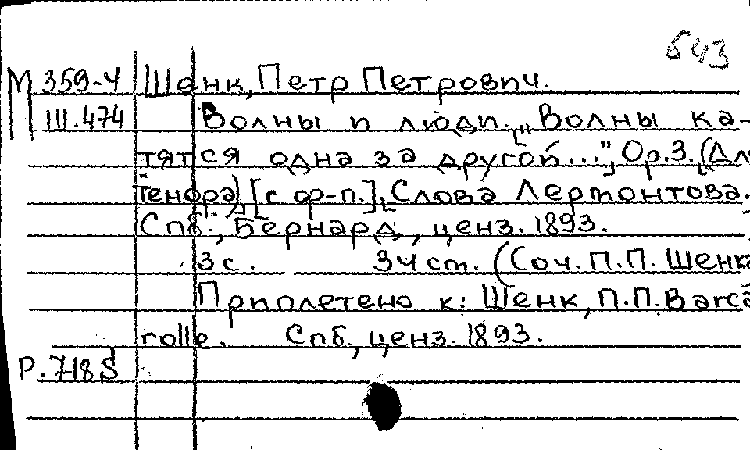 543
М 359-4 Шенк, Петр Петрович.
III.474 Волны и люди. „Волны ка-
тятся одна за другой...", Ор.3. (Для
тенора), [с ф-п.], Слова Лермонтова.
Спб., Бернард, ценз. 1893.
3 с. 34 ст. (Соч. П.П. Шенка
Приплетено к: Шенк, П.П. Barca
rolle. Спб, ценз. 1893.
Р. 718